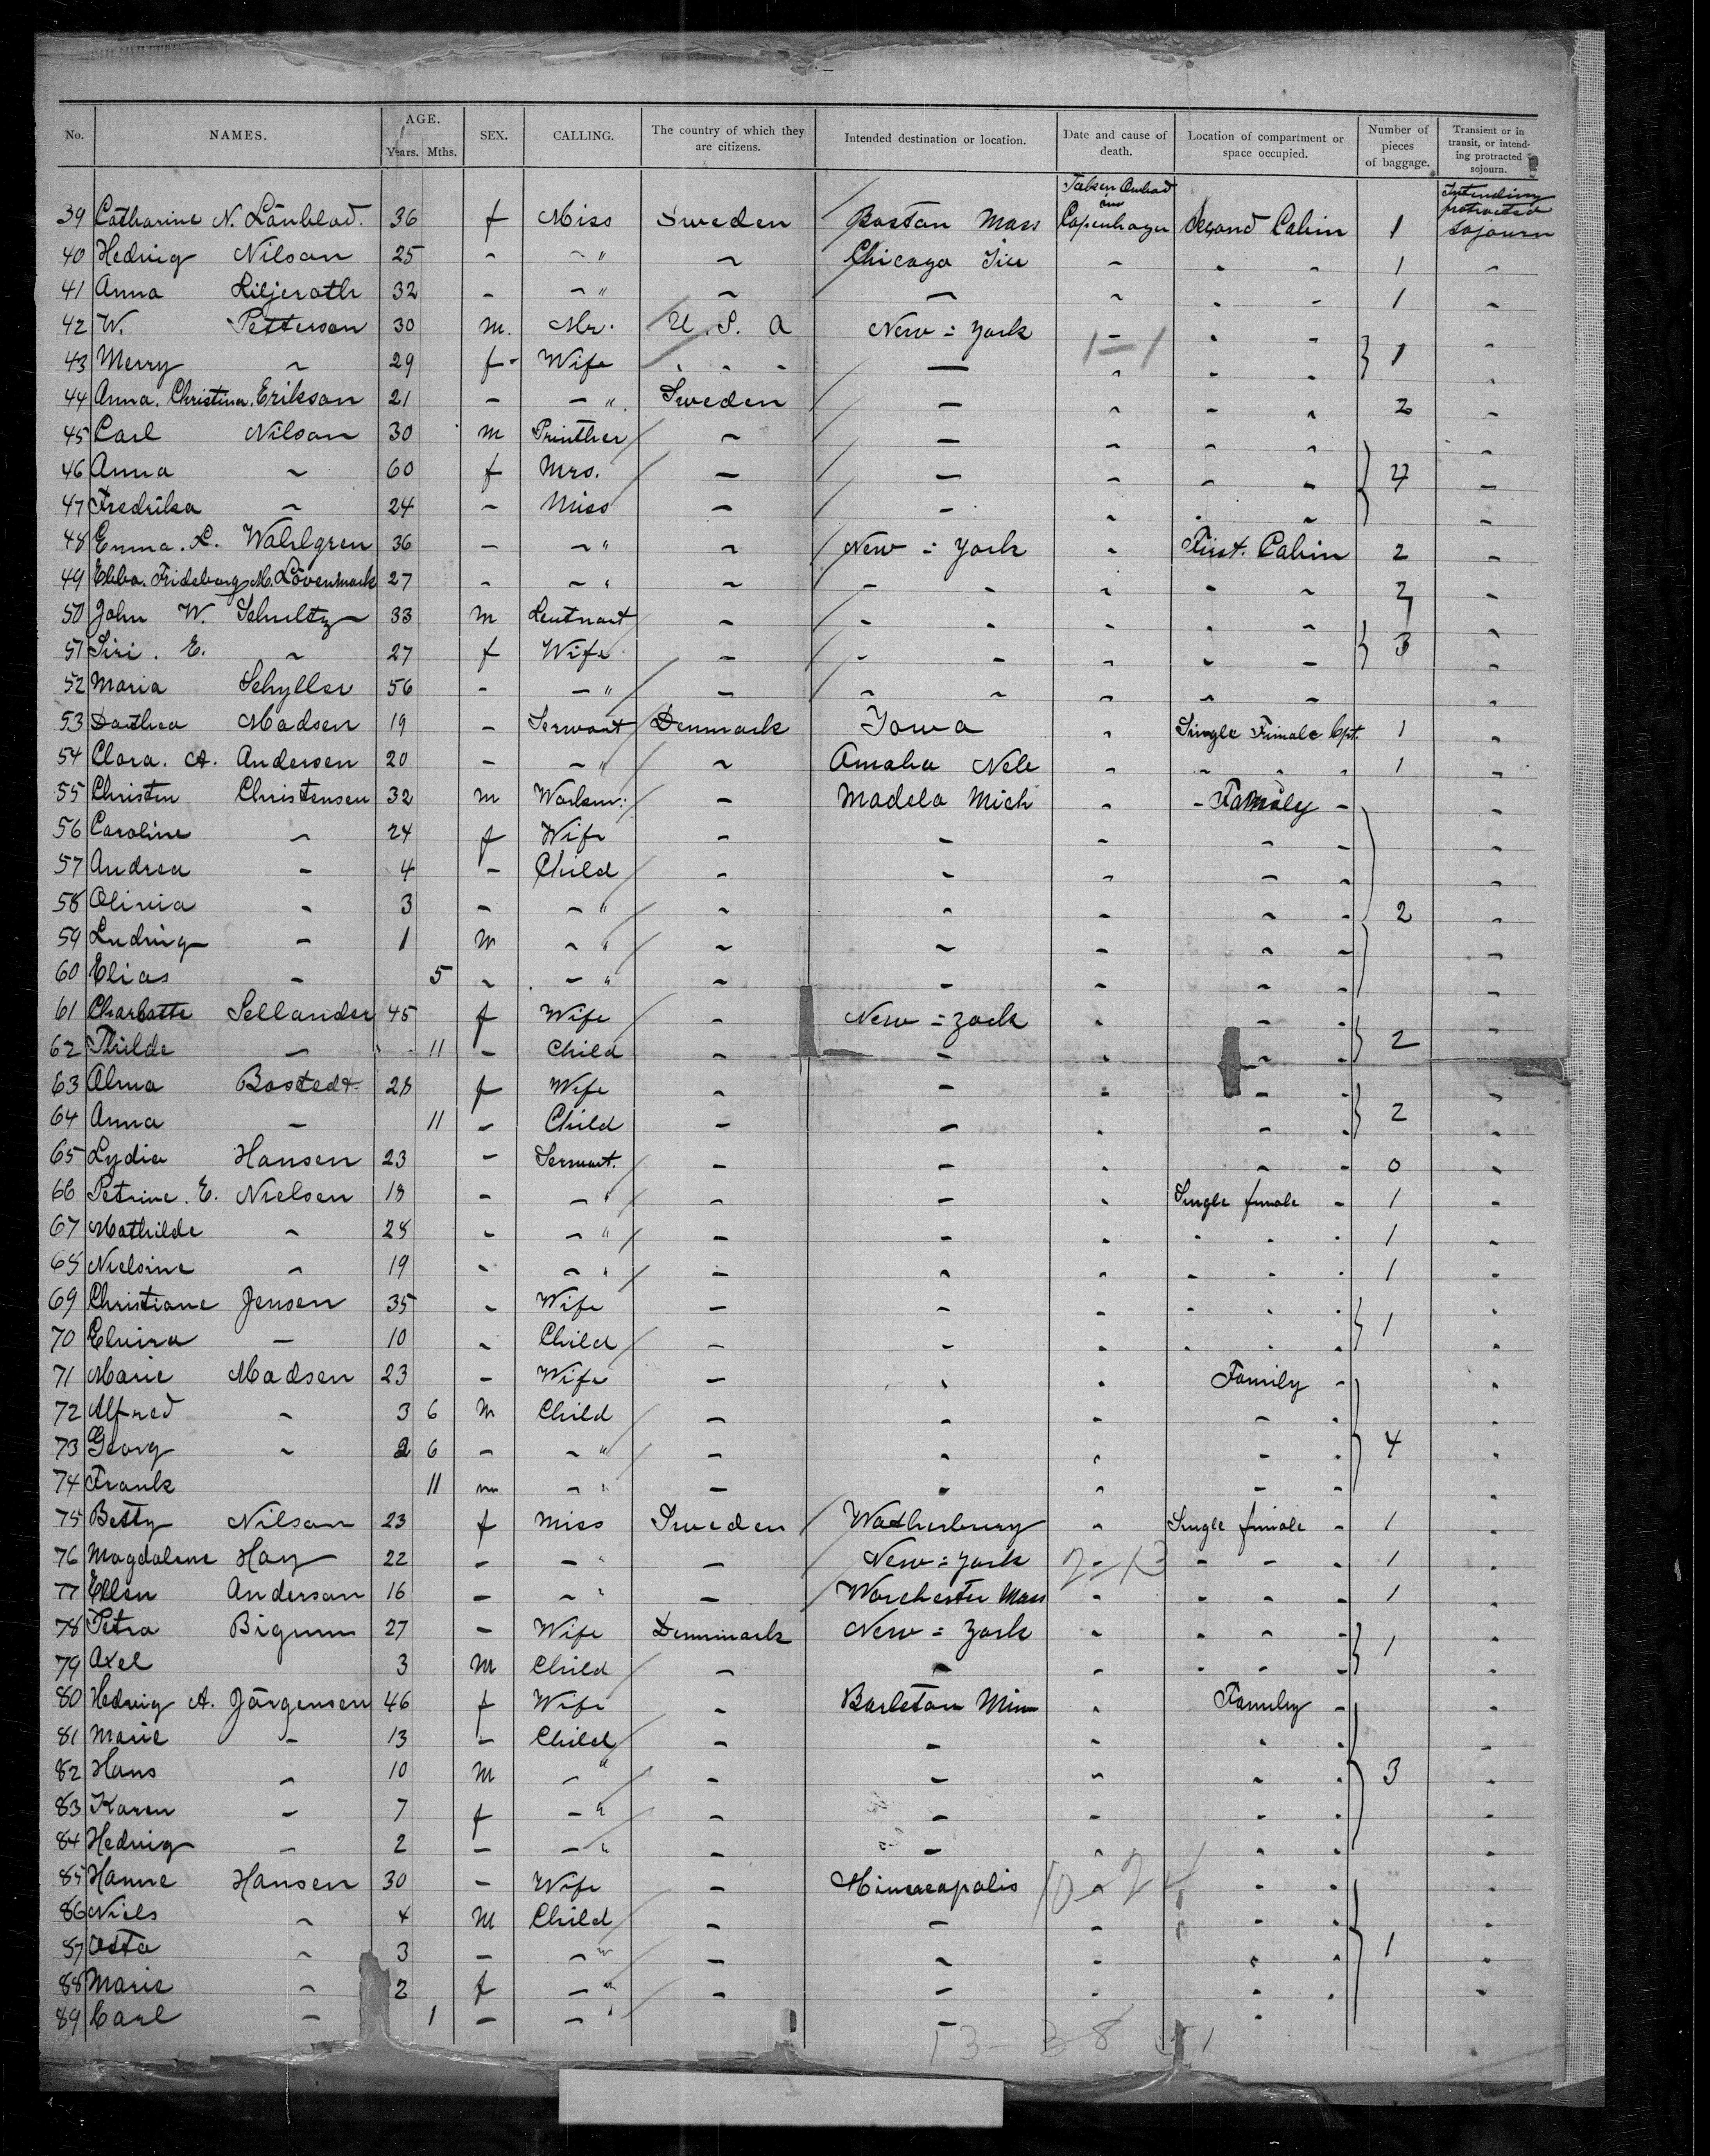 No. NAMES. AGE. Years. Mths. SEX. CALLING. The country of which they are citizens. Intended destination or location. Date and cause of death. Location of compartment or space occupied. Number of pieces of baggage. Transient or in transit, or intending protracted sojourn.
39 Catharine N. Lönblad. 36 f Miss Sweden Boston Mass Copenhagen Second Cabin 1 Intending protracted Sojourn
40 Hedvig Nilson 25 - - " ~ Chicago - - - 1 -
41 Anna Liljeroth 32 - - " ~ - - - - 1 -
42 W. Petterson 30 m. Mr. U. S. A New = York - - - -
43 Merry ~ 29 f - Wife - - - - - - - 1 -
44 Anna. Christina. Erikson 21 - - " Sweden - - - - 2 -
45 Carl Nilson 30 m Printher ~ - - - - -
46 Anna ~ 60 f Mrs. - - - - - 4 -
47 Fredrika ~ 24 - Miss - - - - - -
48 Emma. L. Wahlgren 36 - - " ~ New = York - First. Cabin 2 -
49 Ebba. Frideborg M. Lövenmark 27 - - " ~ - - - - - 2 -
50 John W. Schultz 33 m Leutnant - - - - - - -
51 Siri. E. ~ 27 f Wife - - - - - - 3 -
52 Maria Schyller 56 - - " - - - - - - -
53 Dorthea Madsen 19 - Servant Denmark Iowa - Single Female Cpt. 1 -
54 Clara. A. Andersen 20 - - " ~ Amaha Neb - - - - 1 -
55 Christen Christensen 32 m Workm: - Madela Mich - - Family - -
56 Caroline ~ 24 f Wife - - - - - -
57 Andrea - 4 - Child - - - - - -
58 Olivia - 3 - - " - - - - - 2 -
59 Ludvig - 1 m - " - - - - - -
60 Elias - 5 - - " - - - - - -
61 Charlotte Sellander 45 f Wife - New = York - - - -
62 Thilde - 11 - Child - - - - - 2
63 Alma Bostedt 28 f Wife - - - - - -
64 Anna - 11 - Child - - - - - 2 -
65 Lydia Hansen 23 - Servant. - - - - - 0 -
66 Petrine. E. Nielsen 18 - - " - - - Single female - 1 -
67 Mathilde ~ 28 - - " - - - - - - 1 -
68 Nielsine ~ 19 - - " - - - - - - 1 -
69 Christiane Jensen 35 - Wife - - - - - - -
70 Elvira - 10 - Child - - - - - - 1 -
71 Marie Madsen 23 - Wife - - - Family - -
72 Alfred ~ 3 6 m Child - - - - - -
73 Georg ~ 2 6 - - " - - - - - 4 -
74 Frank 11 m - " - - - - - -
75 Betty Nilson 23 f Miss Sweden Watherbury - Single female - 1 -
76 Magdalene Hay 22 - - " - New = York - - - - 1 -
77 Ellen Anderson 16 - - " - Worchester Mass - - - - 1 -
78 Petra Bigum 27 - Wife Dennmark New = York - - - - -
79 Axel 3 m Child - - - - - - 1 -
80 Hedvig A. Jörgensen 46 f Wife - Barleton Minn - Family - -
81 Marie - 13 - Child - - - - - -
82 Hans - 10 m - " - - - - - 3 -
83 Karen - 7 f - " - - - - - -
84 Hedvig - 2 - - " - - - - - -
85 Hanne Hansen 30 - Wife - Mineapolis - - - -
86 Niels ~ 4 m Child - - - - - -
87 Asta ~ 3 - - " - - - - - 1 -
88 Marie ~ 2 f - " - - - - - -
89 Carl - 1 - - " - -
13 - 38